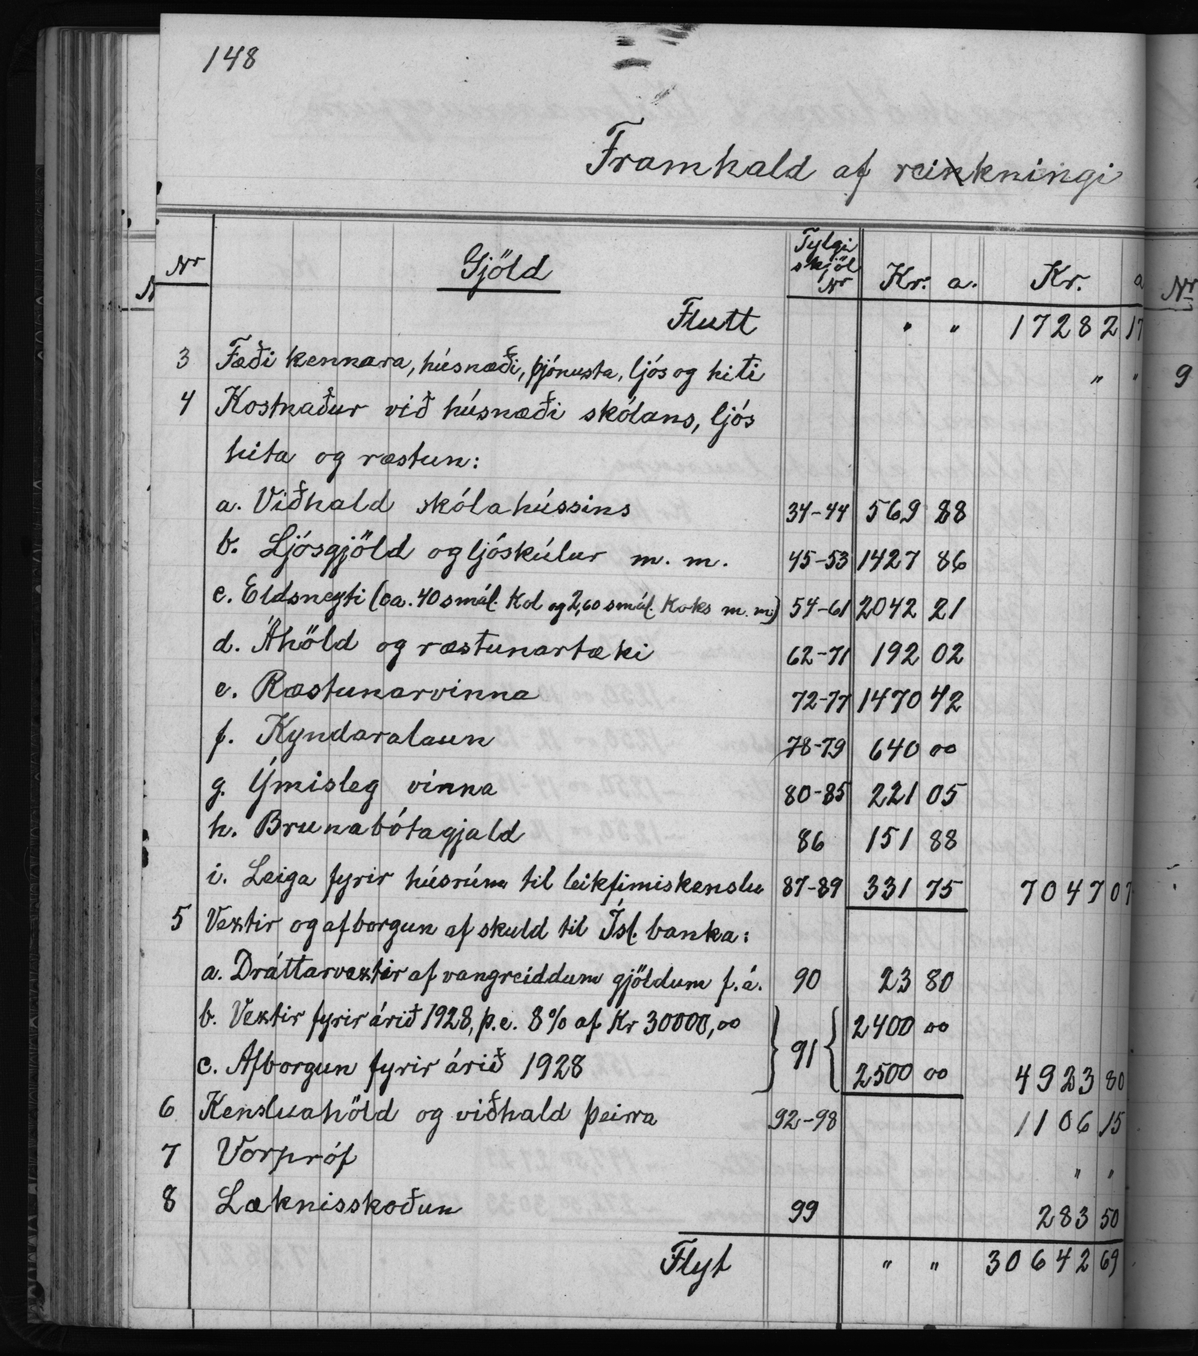 148
Framhald af reikningi
Nr Gjöld Fylgi skjöl Nr Kr. a. Kr. a
Flutt " " 17282 17
3 Fæði kennara, húsnæði, þjónusta, ljós og hiti " "
4 Kostnaður við húsnæði skólans, ljós
hita og ræstun:
a. Viðhald skólahússins 34-44 569 88
b. Ljósgjöld og ljóskúlur m. m. 45-53 1427 86
c. Eldsneyti (ca. 40 smál. Kol og 2,60 smál. Koks m. m.) 54-61 2042 21
d. Áhöld og ræstunartæki 62-71 192 02
e. Ræstunarvinna 72-77 1470 42
f. Kyndaralaun 78-79 640 00
g. Ýmisleg vinna 80-85 221 05
h. Brunabótagjald 86 151 88
i. Leiga fyrir húsrúm til leikfimiskenslu 87-89 331 75 7047 07
5 Vextir og afborgun af skuld til Ísl. banka:
a. Dráttarvextir af vangreiddum gjöldum f. á. 90 23 80
b. Vextir fyrir árið 1928, þ. e. 8% af Kr 30000,00 91 2400 00
c. Afborgun fyrir árið 1928 2500 00 4923 80
6 Kensluahöld og viðhald þeirra 92-98 1106 15
7 Vorpróf " "
8 Læknisskoðun 99 283 50
Flyt " " 30642 69
N
Nr
9